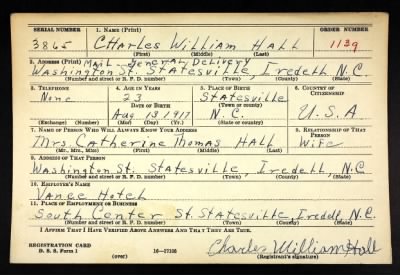 SERIAL NUMBER 1. NAME (Print) ORDER NUMBER
3865 Charles William Hall 1139
(First) (Middle) (Last)
2. ADDRESS (Print) Mail - General Delivery
Washington St. Statesville Iredell N.C.
(Number and street or R. F. D. number) (Town) (County) (State)
3. TELEPHONE 4. AGE IN YEARS 5. PLACE OF BIRTH 6. COUNTRY OF CITIZENSHIP
None 23 Statesville
DATE OF BIRTH (Town or county)
Aug 13 1917 N.C. U.S.A
(Mo.) (Day) (Yr.) (State or country)
7. NAME OF PERSON WHO WILL ALWAYS KNOW YOUR ADDRESS 8. RELATIONSHIP OF THAT PERSON
Mrs Catherine Thomas Hall Wife
(Mr., Mrs., Miss) (First) (Middle) (Last)
9. ADDRESS OF THAT PERSON
Washington St. Statesville Iredell N.C.
(Number and street or R. F. D. number) (Town) (County) (State)
10. EMPLOYER'S NAME
Vance Hotel
11. PLACE OF EMPLOYMENT OR BUSINESS
South Center St. Statesville, Iredell, N.C.
(Number and street or R. F. D. number) (Town) (County) (State)
I AFFIRM THAT I HAVE VERIFIED ABOVE ANSWERS AND THAT THEY ARE TRUE.
REGISTRATION CARD
D. S. S. Form 1 16-17105 Charles William Hall
(Registrant's signature)